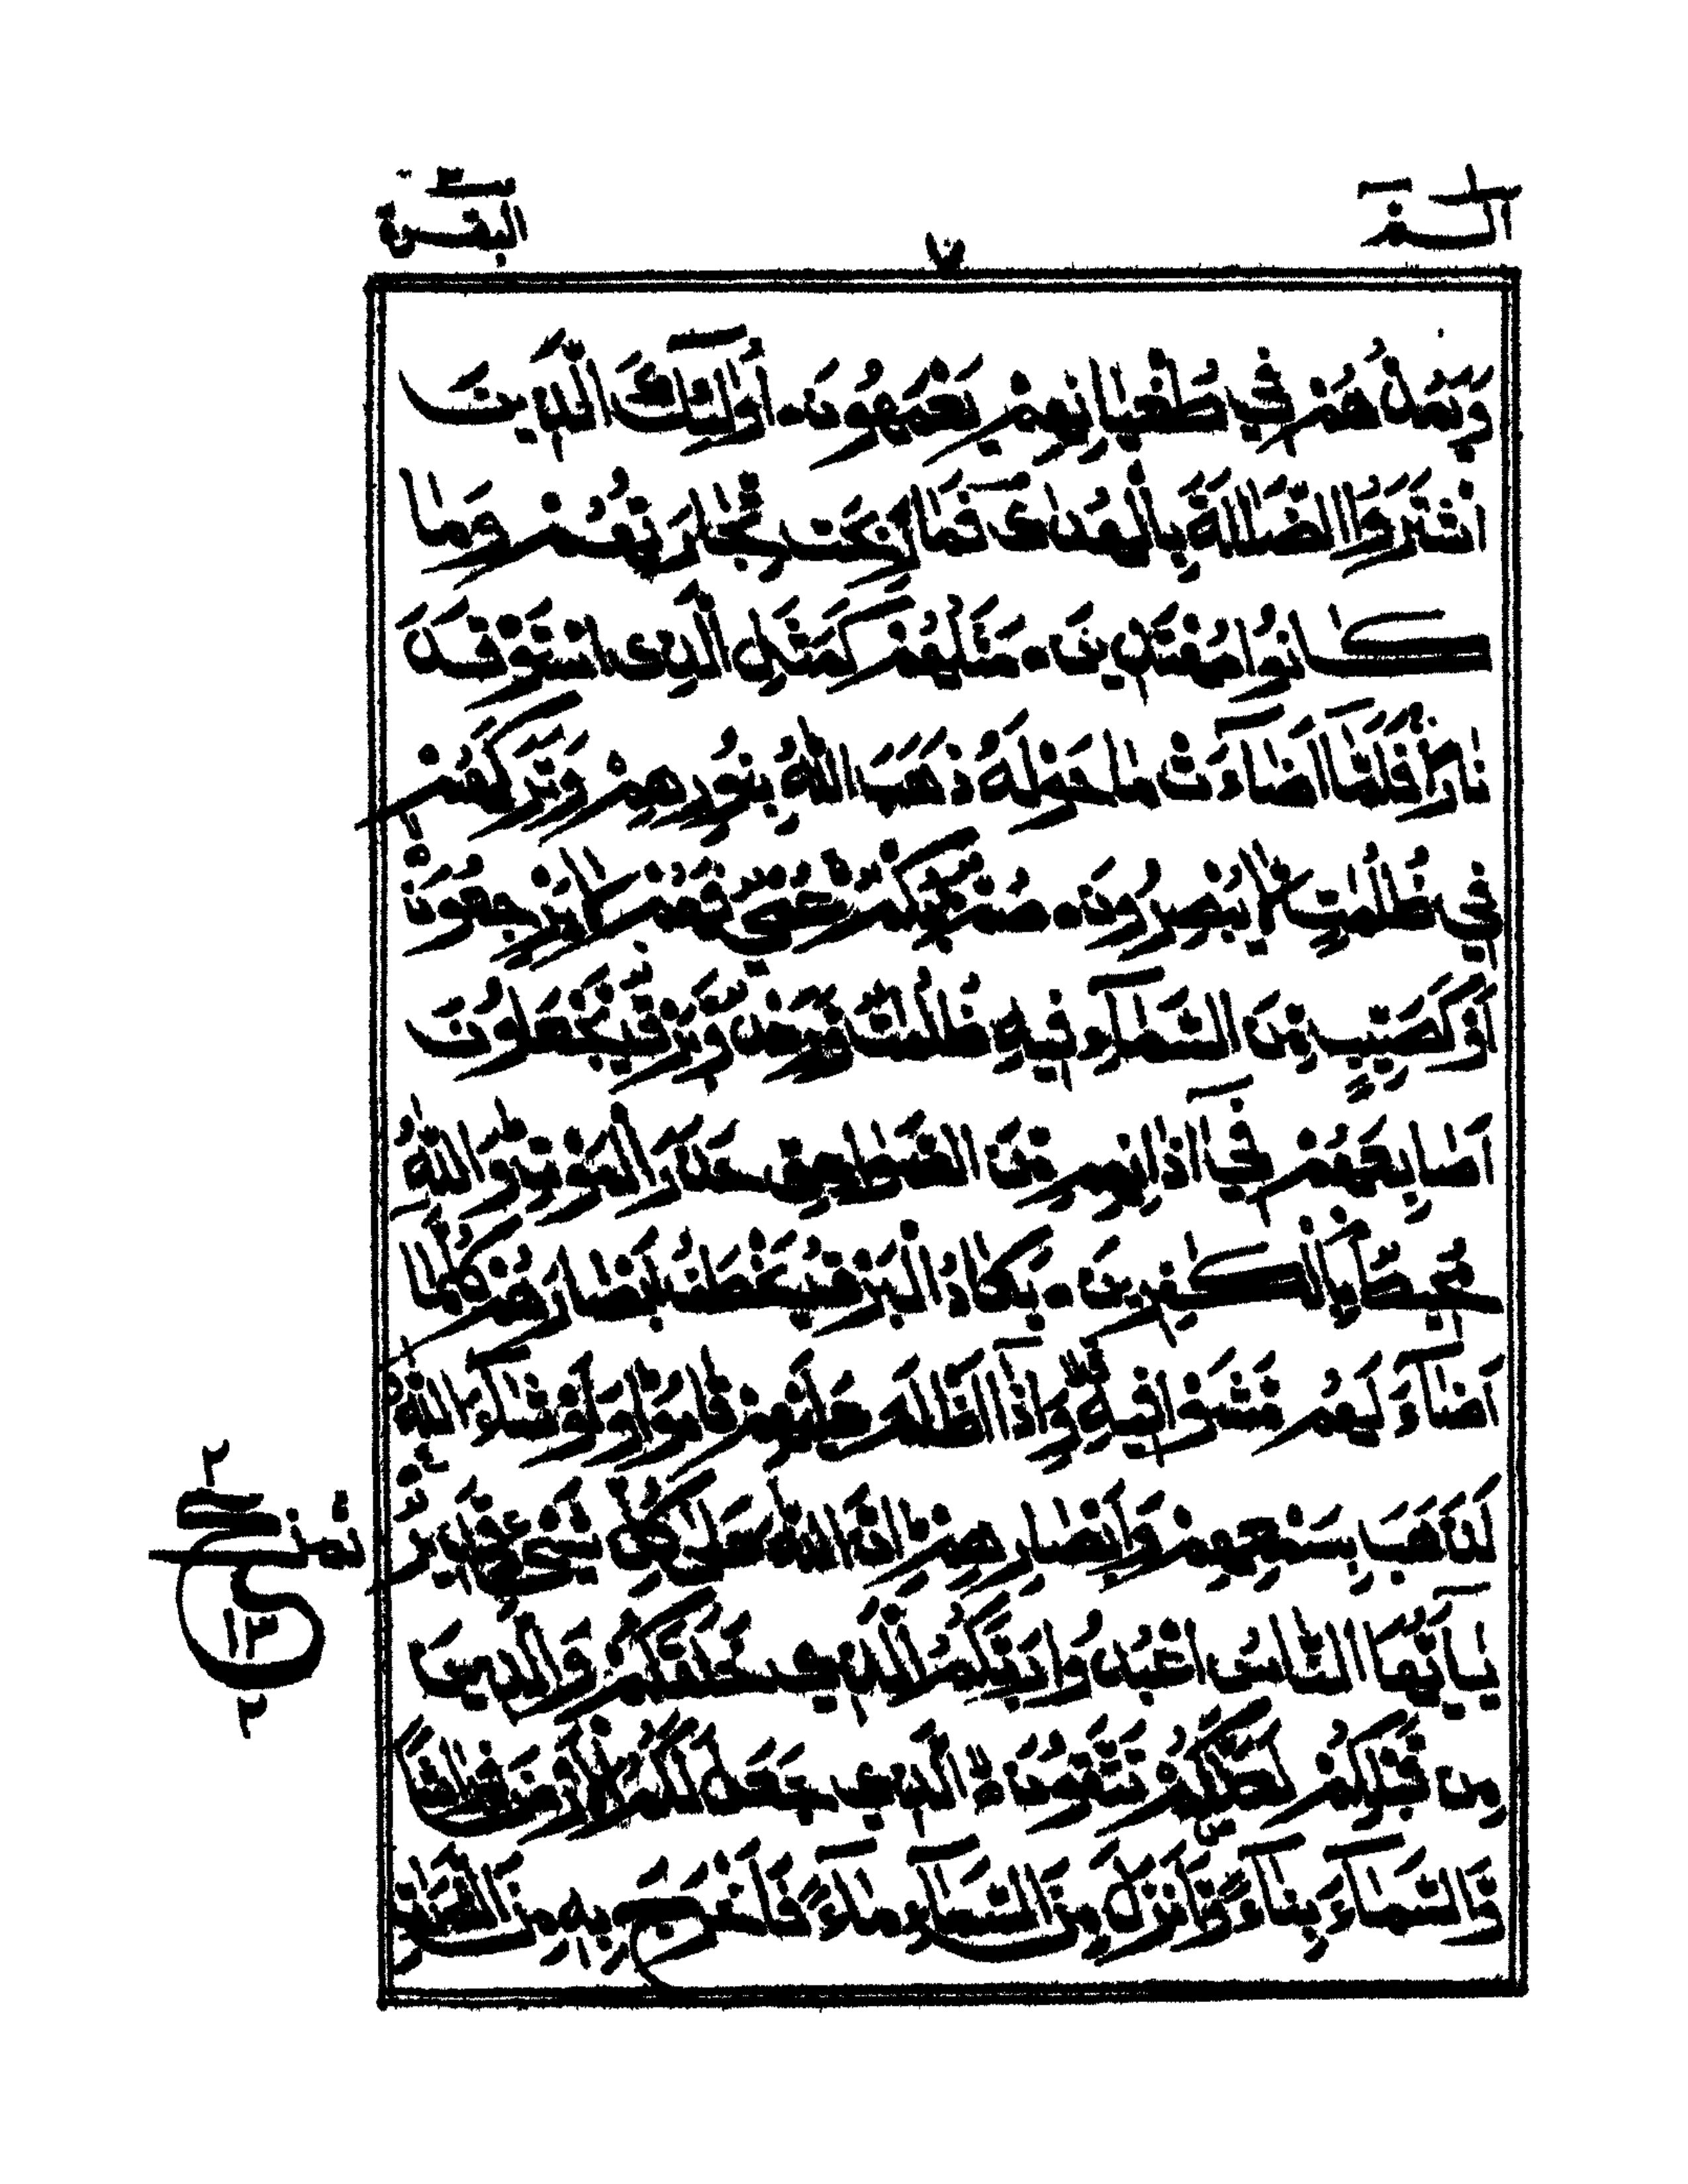 الٓمّٓ ١
٧
البقرة ٢
وَيَمُدُّهُمْ فِي طُغْيَانِهِمْ يَعْمَهُونَ۰ أُولٰٓئِكَ الَّذِينَ
اشْتَرَوُا الضَّلَالَةَ بِالْهُدٰى فَمَا رَبِحَتْ تِجَارَتُهُمْ وَمَا
كَانُوا مُهْتَدِينَ۰ مَثَلُهُمْ كَمَثَلِ الَّذِى اسْتَوْقَدَ
نَارًا فَلَمَّا أَضَاءَتْ مَا حَوْلَهُ ذَهَبَ اللّٰهُ بِنُورِهِمْ وَتَرَكَهُمْ
فِي ظُلُمٰتٍ لَا يُبْصِرُونَ۰ صُمٌّ بُكْمٌ عُمْيٌ فَهُمْ لَا يَرْجِعُونَ لا
أَوْ كَصَيِّبٍ مِنَ السَّمَآءِ فِيهِ ظُلُمٰتٌ وَرَعْدٌ وَبَرْقٌ يَجْعَلُونَ
أَصَابِعَهُمْ فِيٓ اٰذَانِهِمْ مِنَ الصَّوَاعِقِ حَذَرَ الْمَوْتِ ط وَاللّٰهُ
مُحِيطٌ بِالْكٰفِرِينَ۰ يَكَادُ الْبَرْقُ يَخْطَفُ أَبْصَارَهُمْ ط كُلَّمَا
أَضَآءَ لَهُمْ مَشَوْا فِيهِ قلا وَإِذَآ أَظْلَمَ عَلَيْهِمْ قَامُوا ط وَلَوْ شَآءَ اللّٰهُ
لَذَهَبَ بِسَمْعِهِمْ وَأَبْصَارِهِمْ ط إِنَّ اللّٰهَ عَلٰى كُلِّ شَيْءٍ قَدِيرٌ ع
ثمن
٢
ع
١٣
٢
يٰٓأَيُّهَا النَّاسُ اعْبُدُوا رَبَّكُمُ الَّذِي خَلَقَكُمْ وَالَّذِينَ
مِنْ قَبْلِكُمْ لَعَلَّكُمْ تَتَّقُونَ لا الَّذِي جَعَلَ لَكُمُ الْأَرْضَ فِرَاشًا
وَالسَّمَآءَ بِنَآءً ص وَأَنْزَلَ مِنَ السَّمَآءِ مَآءً فَأَخْرَجَ بِهِ مِنَ الثَّمَرٰتِ